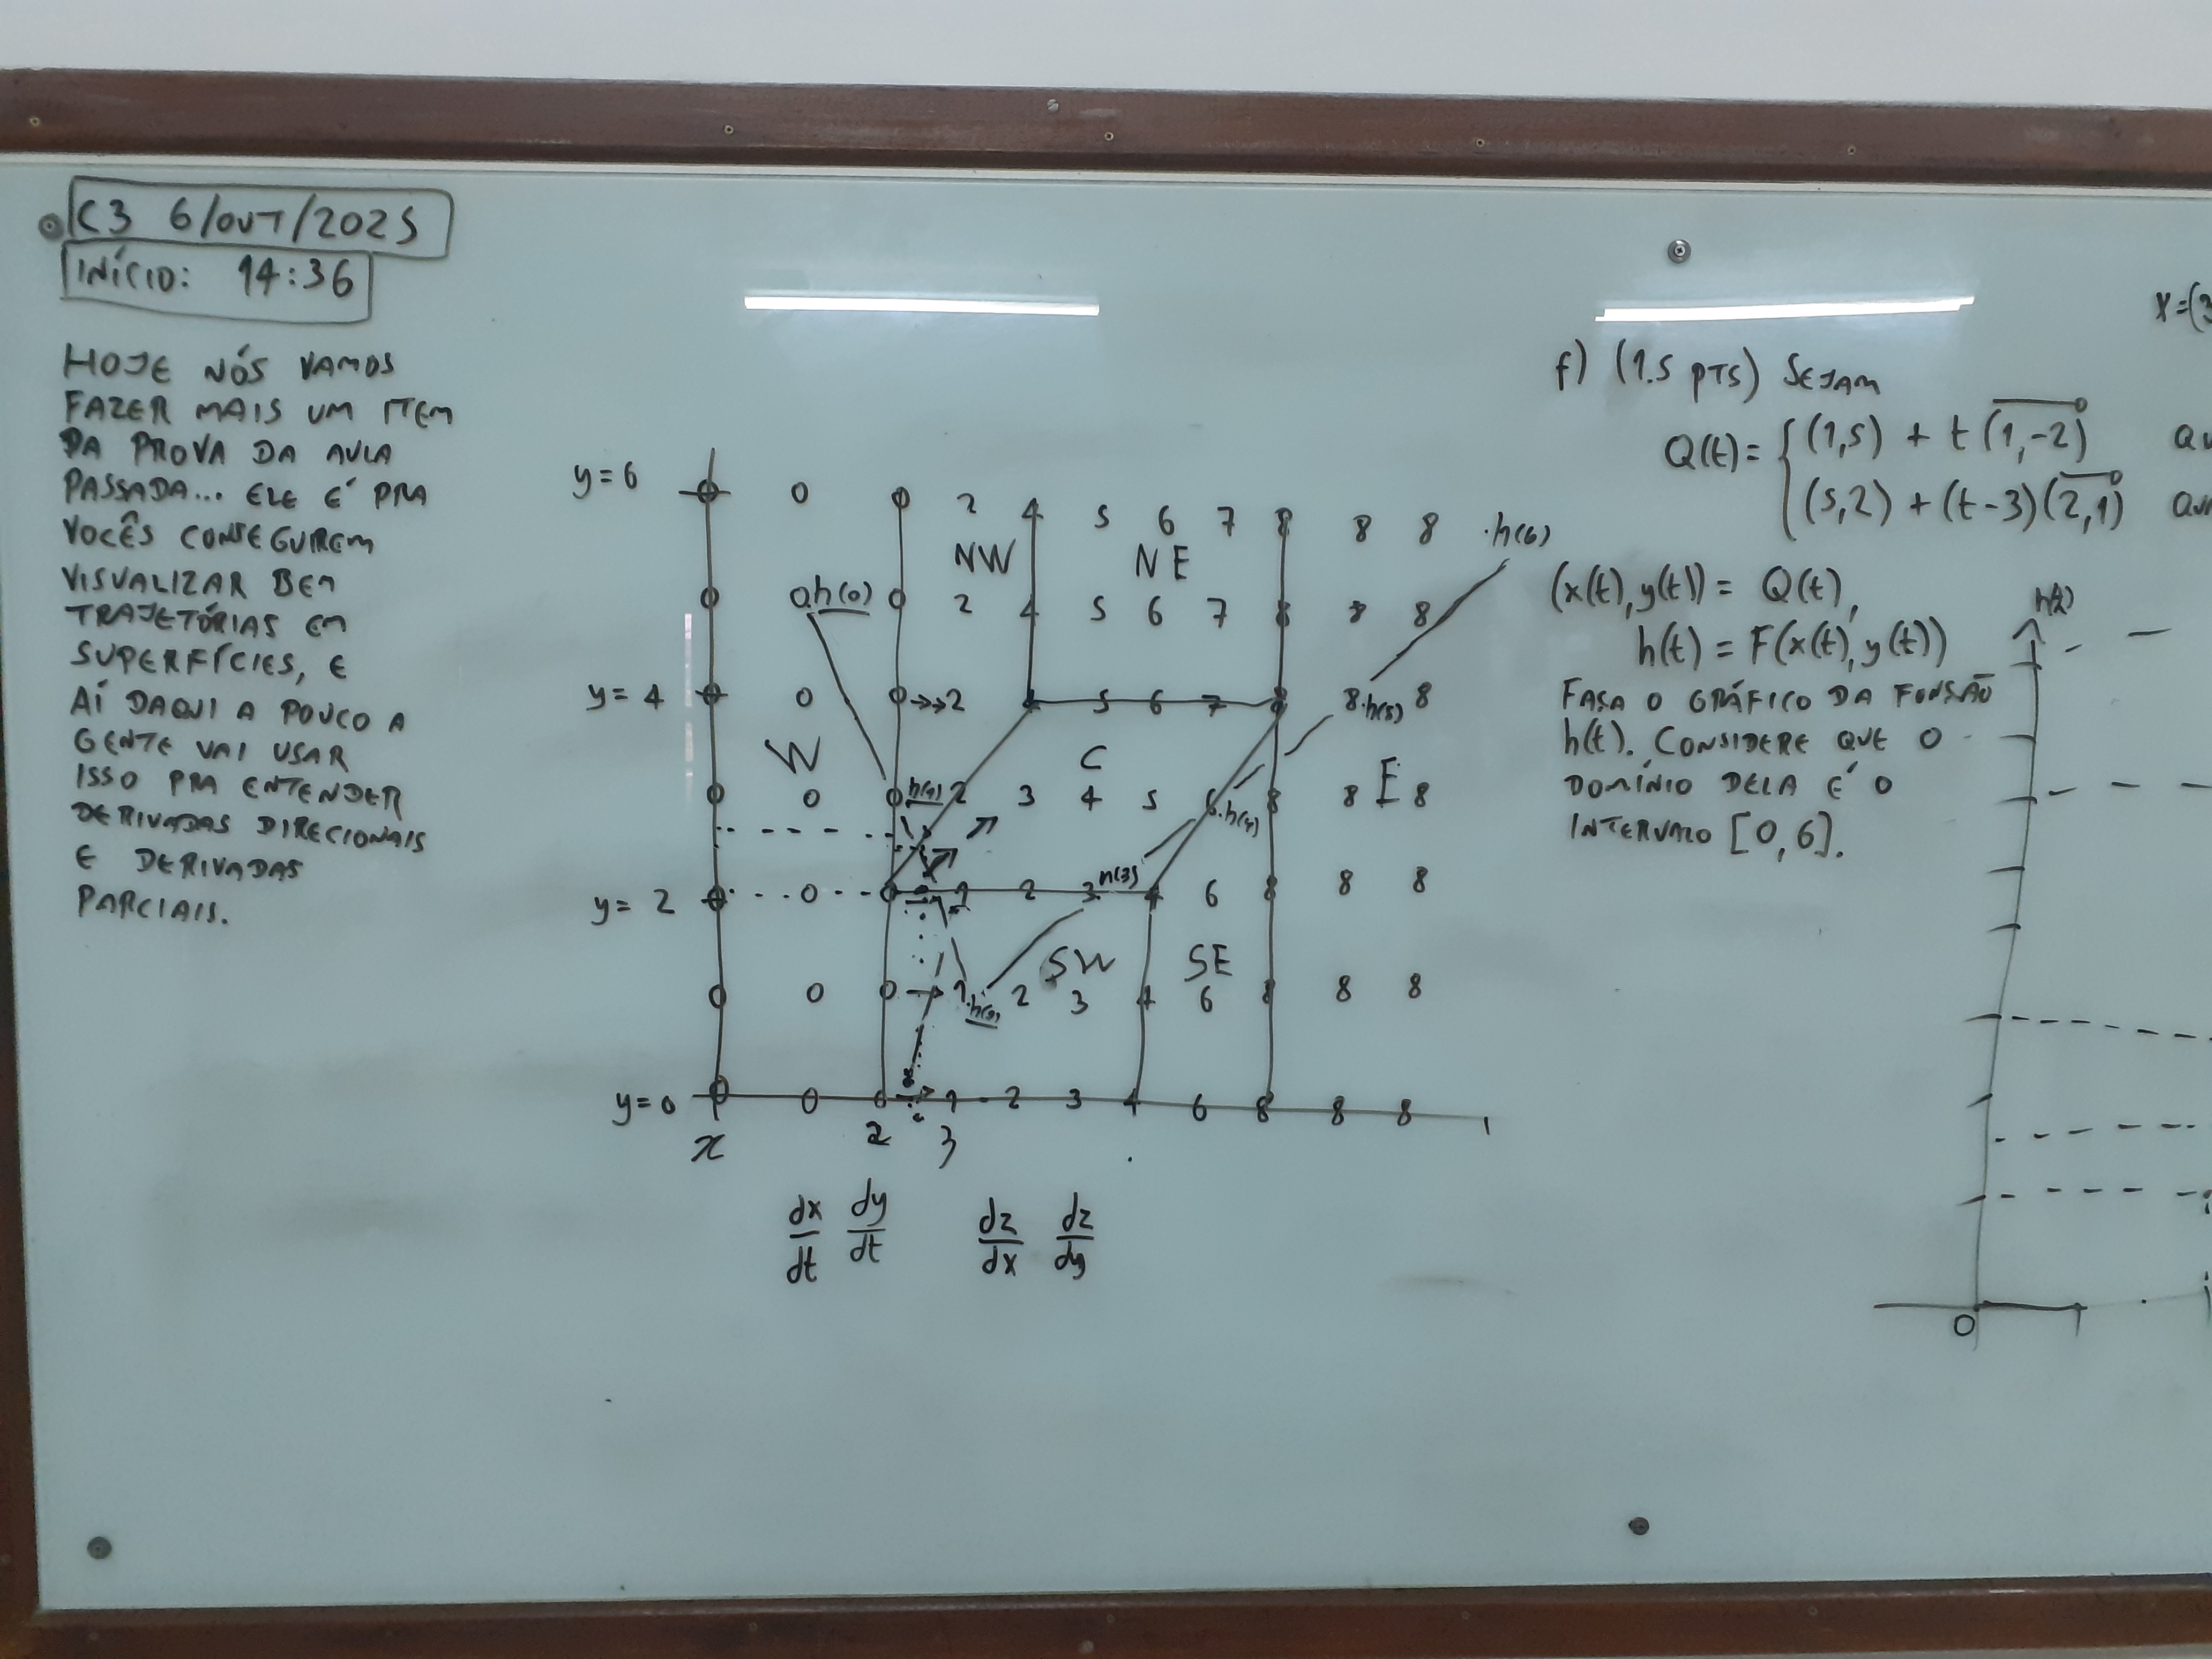 C3 6/OUT/2025
INÍCIO: 14:36
HOJE NÓS VAMOS
FAZER MAIS UM ITEM
DA PROVA DA AULA
PASSADA... ELE É PRA
VOCÊS CONSEGUIREM
VISUALIZAR BEM
TRAJETÓRIAS EM
SUPERFÍCIES, E
AÍ DAQUI A POUCO A
GENTE VAI USAR
ISSO PRA ENTENDER
DERIVADAS DIRECIONAIS
E DERIVADAS
PARCIAIS.
y=6 0 0 0 2 4 5 6 7 8 8 8 .h(6)
NW NE
0 0.h(0) 0 2 4 5 6 7 8 8 8
y=4 0 0 0 2 4 5 6 7 8 8.h(5) 8
W C E
0 0 0 h(1) 2 3 4 5 6.h(4) 8 8 8
y=2 0 0 0 1 2 3 h(3) 4 6 8 8 8
SW SE
0 0 0 1.h(2) 2 3 4 6 8 8 8
y=0 0 0 0 1 2 3 4 6 8 8 8
x 2 3
dx/dt dy/dt dz/dx dz/dy
f) (1.5 PTS) SEJAM
Q(t)= { (1,5) + t(1,-2)
(5,2) + (t-3)(2,1)
(x(t),y(t)) = Q(t),
h(t) = F(x(t),y(t))
FAÇA O GRÁFICO DA FUNÇÃO
h(t). CONSIDERE QUE O
DOMÍNIO DELA É O
INTERVALO [0,6].
h(t)
0